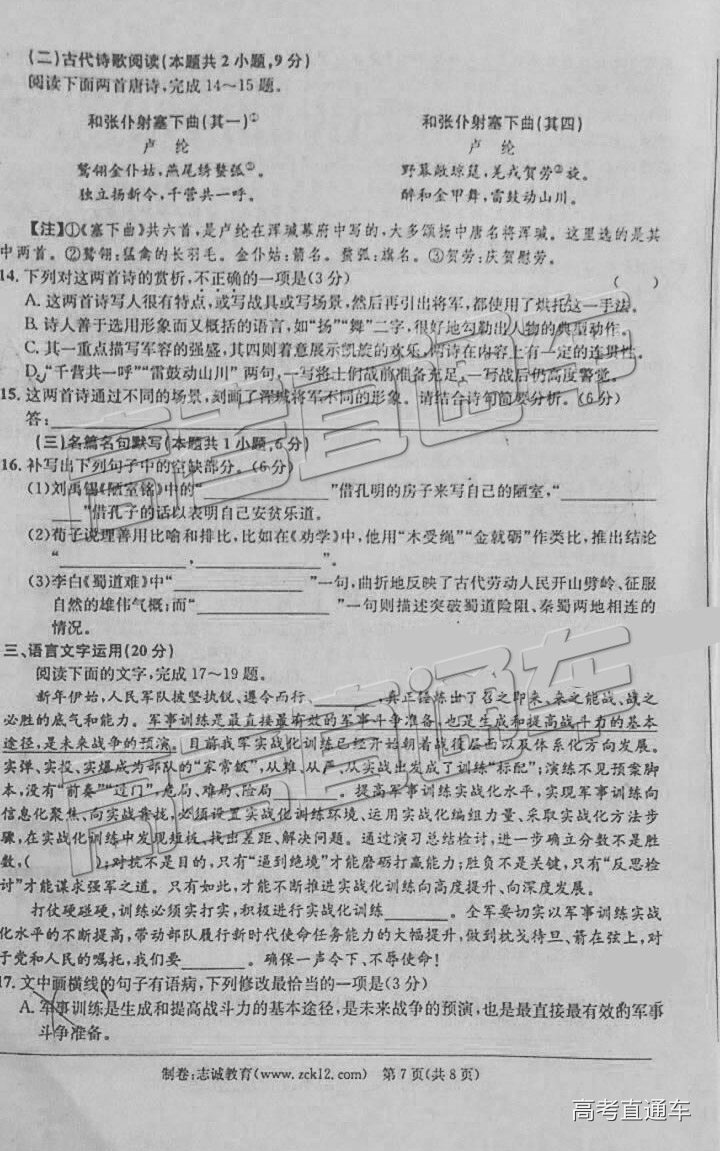 (二)古代诗歌阅读(本题共2小题,9分)
阅读下面两首唐诗,完成14～15题。
和张仆射塞下曲(其一)①
和张仆射塞下曲(其四)
卢 纶
卢 纶
鹫翎金仆姑,燕尾绣蝥弧②。
野幕敞琼筵,羌戎贺劳③旋。
独立扬新令,千营共一呼。
醉和金甲舞,雷鼓动山川。
【注】①《塞下曲》共六首,是卢纶在浑瑊幕府中写的,大多颂扬中唐名将浑瑊。这里选的是其
中两首。②鹫翎:猛禽的长羽毛。金仆姑:箭名。蝥弧:旗名。③贺劳:庆贺慰劳。
14.下列对这两首诗的赏析,不正确的一项是(3分) ( )
A.这两首诗写人很有特点,或写战具或写场景,然后再引出将军,都使用了烘托这一手法。
B.诗人善于选用形象而又概括的语言,如“扬”“舞”二字,很好地勾勒出人物的典型动作。
C.其一重点描写军容的强盛,其四则着意展示凯旋的欢乐,两诗在内容上有一定的连贯性。
D.“千营共一呼”“雷鼓动山川”两句,一写将士们战前准备充足,一写战后仍高度警觉。
15.这两首诗通过不同的场景,刻画了浑瑊将军不同的形象。请结合诗句简要分析。(6分)
答:
(三)名篇名句默写(本题共1小题,6分)
16.补写出下列句子中的空缺部分。(6分)
(1)刘禹锡《陋室铭》中的“____________”借孔明的房子来写自己的陋室,“____________
____”借孔子的话以表明自己安贫乐道。
(2)荀子说理善用比喻和排比,比如在《劝学》中,他用“木受绳”“金就砺”作类比,推出结论
“____________,____________”。
(3)李白《蜀道难》中“____________”一句,曲折地反映了古代劳动人民开山劈岭、征服
自然的雄伟气概;而“____________”一句则描述突破蜀道险阻、秦蜀两地相连的
情况。
三、语言文字运用(20分)
阅读下面的文字,完成17～19题。
新年伊始,人民军队披坚执锐、遵令而行、______,真正锤炼出了召之即来、来之能战、战之
必胜的底气和能力。军事训练是最直接最有效的军事斗争准备,也是生成和提高战斗力的基本
途径,是未来战争的预演。目前我军实战化训练已经开始朝着战役层面以及体系化方向发展。
实弹、实投、实爆成为部队的“家常饭”,从难、从严、从实战出发成了训练“标配”;演练不见预案脚
本,没有“前奏”“过门”,危局、难局、险局______。提高军事训练实战化水平,实现军事训练向
信息化聚焦、向实战靠拢,必须设置实战化训练环境、运用实战化编组力量、采取实战化方法步
骤,在实战化训练中发现短板、找出差距、解决问题。通过演习总结检讨,进一步确立分数不是胜
数,( );对抗不是目的,只有“逼到绝境”才能磨砺打赢能力;胜负不是关键,只有“反思检
讨”才能谋求强军之道。只有如此,才能不断推进实战化训练向高度提升、向深处发展。
打仗硬碰硬,训练必须实打实,积极进行实战化训练______。全军要切实以军事训练实战
化水平的不断提高,带动部队履行新时代使命任务能力的大幅提升,做到枕戈待旦、箭在弦上,对
于党和人民的嘱托,我们要______。确保一声令下、不辱使命!
17.文中画横线的句子有语病,下列修改最恰当的一项是(3分)
A.军事训练是生成和提高战斗力的基本途径,是未来战争的预演,也是最直接最有效的军事
斗争准备。
制卷:志诚教育(www.zck12.com) 第7页(共8页)
高考直通车